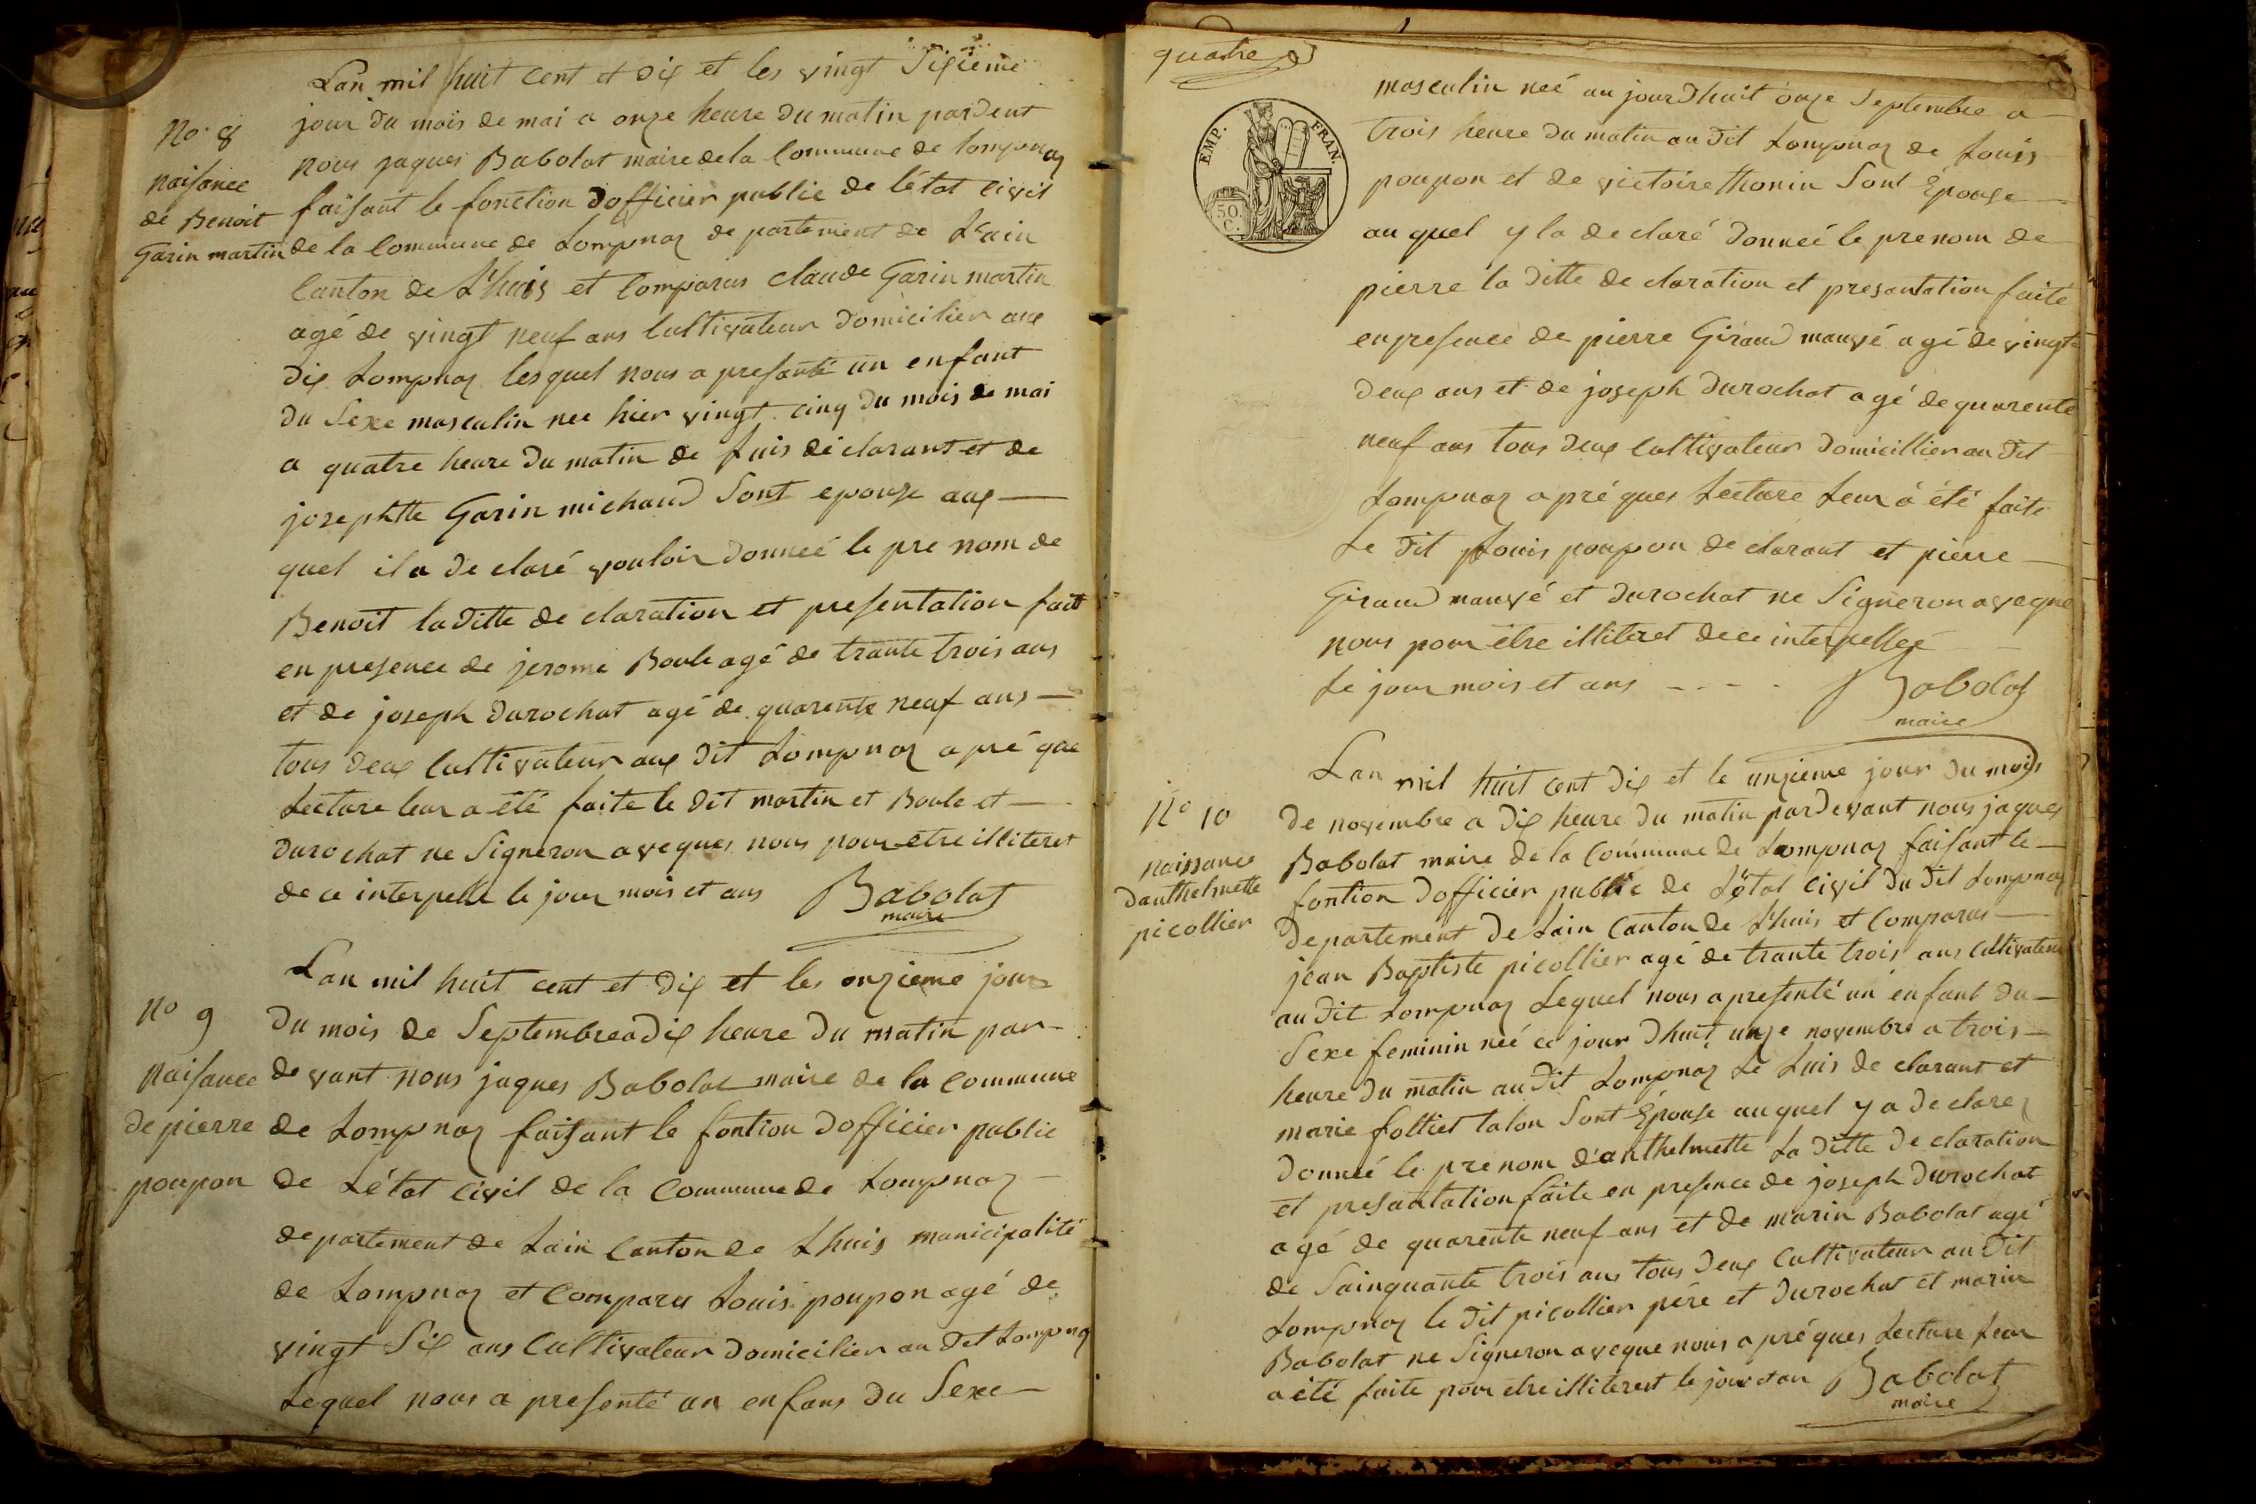 Lan mil huit cent et dix et les vingt Sixieme
jour du mois de mai a onze heure du matin pardent
nous jaques Babolat maire de la Commune de Lompnaz
No. 8
naisance
de Benoit
Garin martin
faisant le fonction dofficier public de létat Civil
de la Commune de Lompnaz de partement de Lain
Canton de Lhuis et Comparus claude Garin martin
agé de vingt neuf ans Cultivateur domicilier aux
dix Lompnaz lesquel nous a presanté un enfant
du Sexe masculin nee hier vingt cinq du mois de mai
a quatre heure du matin de luis déclarant et de
josephtte Garin michaud Sont epouze aux
quel il a de claré vouloir donneé le pre nom de
Benoit la ditte de claration et presentation fait
en presence de jerome Boule agé de trante trois ans
et de joseph durochat agé de quarente neuf ans
tous deux Cultivateur aux dit Lompnaz a pré que
Lecture leur a été faite le dit martin et Boule et
durochat ne Signeron aveques nous pour etre illiteret
de ce interpelle le jour mois et ans Babolat
maire
Lan mil huit cent et dix et les onzieme jour
No 9
naisance
de pierre
poupon
du mois de Septembre a dix heure du matin par-
devant nous jaques Babolat maire de la Commune
de Lompnaz faisant le fontion dofficier public
de Létat civil de la Commune de Lompnaz
departement de Lain Canton de Lhuis municipalité
de Lompnaz et Comparu Louis poupon agé de
vingt Six ans Cultivateur domicilier au dit Lompnaz
Lequel nous a presenté un enfans du Sexe
quatre
EMP. FRAN.
50.
C.
masculin neé au jourdhuit onze Septembre a
trois heure du matin au dit Lompnaz de Louis
poupon et de victoire thonin Sont Épouze
au quel y la de claré donneé le prenom de
pierre la ditte de claration et presantation faite
en presence de pierre Giraud mauvé agé de vingt
deux ans et de joseph durochat agé de quarente
neuf ans tous deux Cultivateur domicillier au dit
Lompnaz a pré ques Lecture Leur á été faite
Le dit Louis poupon de clarant et pierre
Giraud mauvé et durochat ne Signeron aveque
nous pour étre illiteret de ce interpelleé
Le jour mois et ans Babolat
maire
Lan mil huit cent dix et le unzieme jour du mois
No 10
naissance
danthelmette
picollier
de novembre a dix heure du matin pardevant nous jaques
Babolat maire de la Commune de Lompnaz faisant le
fontion dofficier public de Létat Civil du dit Lompnaz
departement de Lain Canton de Lhuis et Comparus
jean Baptiste picollier agé de trante trois ans cultivateur
au dit Lompnaz Lequel nous a presenté un enfant du
Sexe feminin néé ce jour dhuit unze novembre a trois
heure du matin au dit Lompnaz de Luis de clarant et
marie folliet talon Sont Épouse au quel y a de clarez
donneé le pre nom d'anthelmette La ditte de claration
et presantation faite en presence de joseph Durochat
agé de quarente neuf ans et de marin Babolat agé
de Sainquante trois ans tous deux Cultivateur au dit
Lompnaz le dit picollier pére et durochat et marin
Babolat ne Signeron aveque nous a pré ques Lecture Leur
a été faite pour etre illiterest le jour et an Babolat
maire